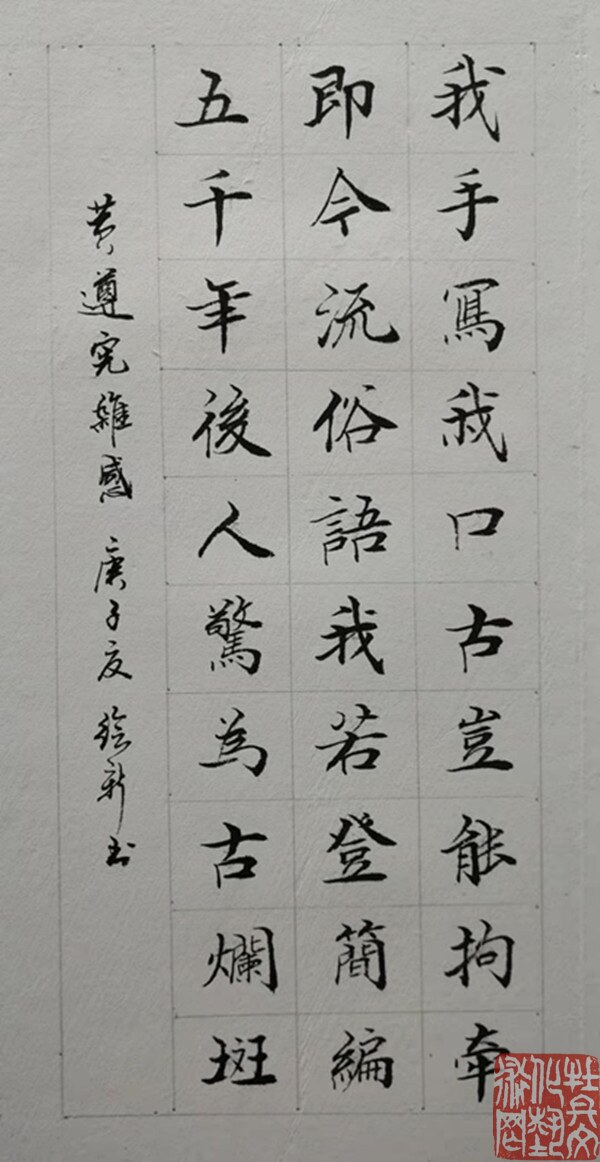 我手寫我口古豈能拘牽
即今流俗語我若登簡編
五千年後人驚為古爛斑
黃遵憲雜感 庚子夏 新書